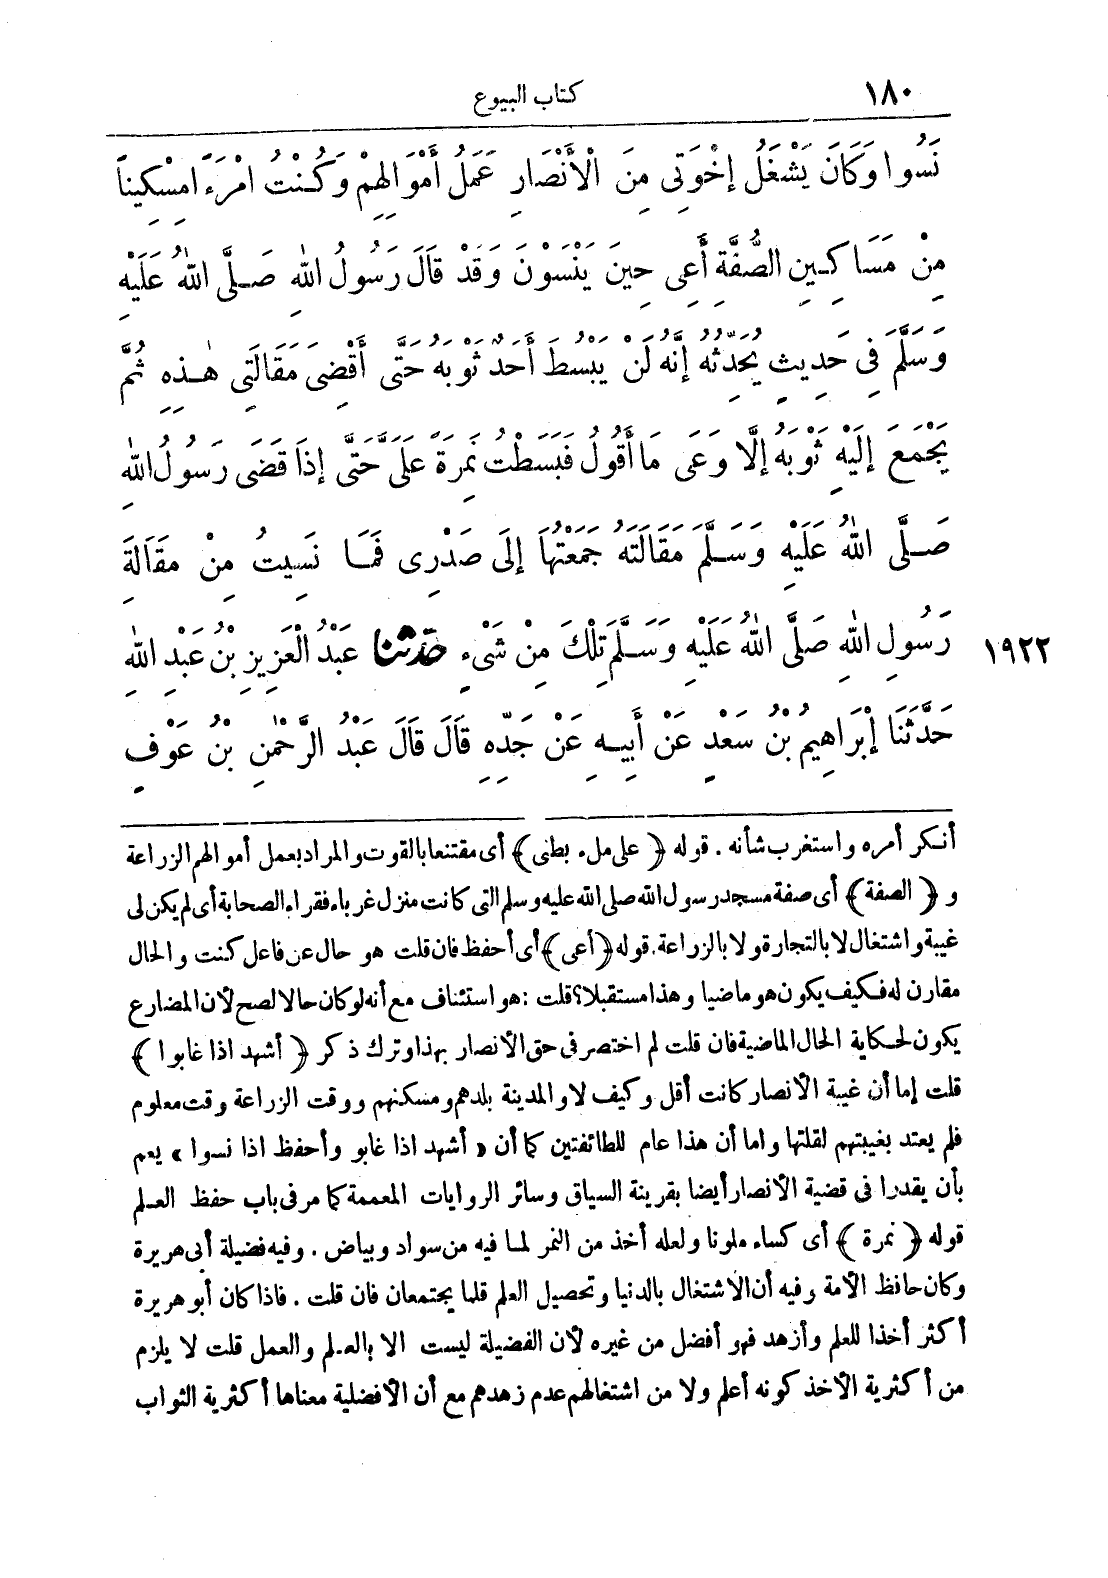 ١٨٠ كتاب البيوع
نَسُوا وَكَانَ يَشْغَلُ إِخْوَتِى مِنَ الْأَنْصَارِ عَمَلُ أَمْوَالِهِمْ وَكُنْتُ امْرَءًا مِسْكِينًا
مِنْ مَسَاكِينِ الصُّفَّةِ أَعِى حِينَ يَنْسَوْنَ وَقَدْ قَالَ رَسُولُ اللهِ صَلَّى اللهُ عَلَيْهِ
وَسَلَّمَ فِى حَدِيثٍ يُحَدِّثُهُ إِنَّهُ لَنْ يَبْسُطَ أَحَدٌ ثَوْبَهُ حَتَّى أَقْضِىَ مَقَالَتِى هٰذِهِ ثُمَّ
يَجْمَعَ إِلَيْهِ ثَوْبَهُ إِلَّا وَعَى مَا أَقُولُ فَبَسَطْتُ نَمِرَةً عَلَىَّ حَتَّى إِذَا قَضَى رَسُولُ اللهِ
صَلَّى اللهُ عَلَيْهِ وَسَلَّمَ مَقَالَتَهُ جَمَعْتُهَا إِلَى صَدْرِى فَمَا نَسِيتُ مِنْ مَقَالَةِ
١٩٢٢ رَسُولِ اللهِ صَلَّى اللهُ عَلَيْهِ وَسَلَّمَ تِلْكَ مِنْ شَىْءٍ حَدَّثَنَا عَبْدُ الْعَزِيزِ بْنُ عَبْدِ اللهِ
حَدَّثَنَا إِبْرَاهِيمُ بْنُ سَعْدٍ عَنْ أَبِيهِ عَنْ جَدِّهِ قَالَ قَالَ عَبْدُ الرَّحْمٰنِ بْنُ عَوْفٍ
أنكر أمره واستغرب شأنه . قوله ﴿ على ملء بطنى ﴾ أى مقتنعا بالقوت والمراد بعمل أموالهم الزراعة
و ﴿ الصفة ﴾ أى صفة مسجد رسول الله صلى الله عليه وسلم التى كانت منزل غرباء فقراء الصحابة أى لم يكن لى
غيبة واشتغال لا بالتجارة ولا بالزراعة. قوله ﴿أعى ﴾ أى أحفظ فان قلت هو حال عن فاعل كنت والحال
مقارن له فكيف يكون هو ماضيا وهذا مستقبلا؟ قلت : هو استئناف مع أنه لو كان حالا لصح لأن المضارع
يكون لحكاية الحال الماضية فان قلت لم اختصر فى حق الأنصار بهذا وترك ذكر ﴿ أشهد اذا غابوا ﴾
قلت إما أن غيبة الأنصار كانت أقل وكيف لا والمدينة بلدهم ومسكنهم ووقت الزراعة وقت معلوم
فلم يعتد بغيبتهم لقلتها واما أن هذا عام للطائفتين كما أن « أشهد اذا غابو وأحفظ اذا نسوا » يعم
بأن يقدرا فى قضية الأنصار أيضا بقرينة السياق وسائر الروايات المعممة كما مر فى باب حفظ العلم
قوله ﴿ نمرة ﴾ أى كساء ملونا ولعله أخذ من النمر لما فيه من سواد وبياض . وفيه فضيلة أبى هريرة
وكان حافظ الأمة وفيه أن الاشتغال بالدنيا وتحصيل العلم قلما يجتمعان فان قلت . فاذا كان أبو هريرة
أكثر أخذا للعلم وأزهد فهو أفضل من غيره لأن الفضيلة ليست الا بالعلم والعمل قلت لا يلزم
من أكثرية الأخذ كونه أعلم ولا من اشتغالهم عدم زهدهم مع أن الأفضلية معناها أكثرية الثواب